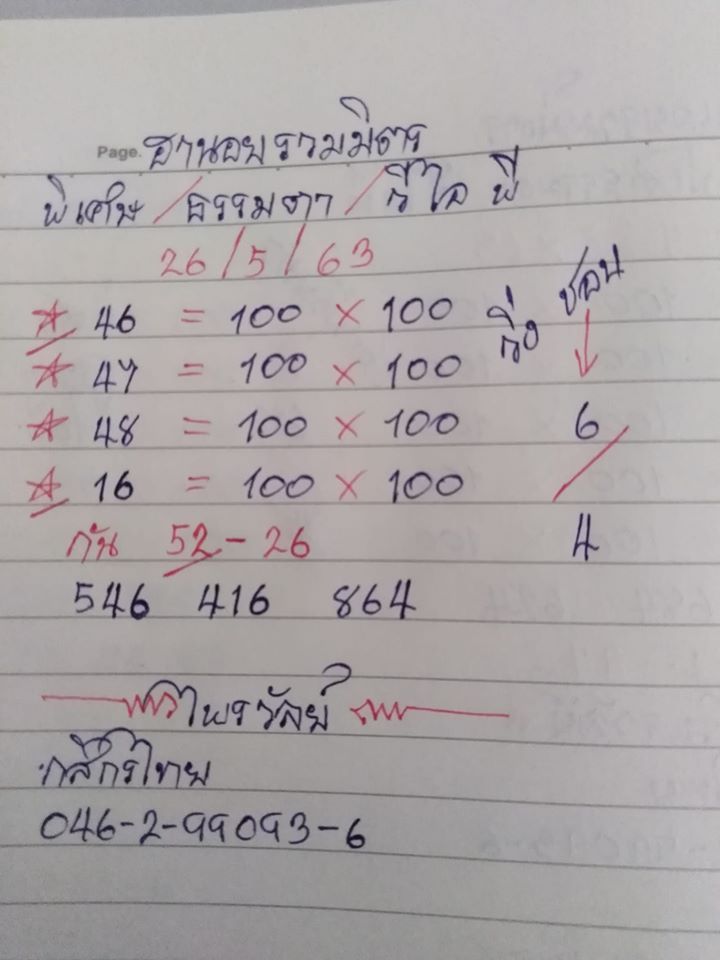 Page. ฮานอยรวมมิตร
พิเศษ / ธรรมดา / วีไอ พี
26/5/63
46 = 100 × 100
47 = 100 × 100
48 = 100 × 100
16 = 100 × 100
วิ่ง ชอบ
6
4
กัน 52 - 26
546 416 864
ไพรวัลย์
กสิกรไทย
046-2-99093-6